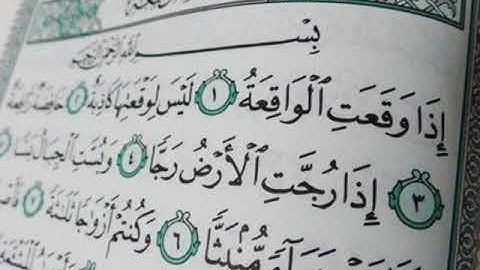 بِسْمِ اللَّهِ الرَّحْمَٰنِ الرَّحِيمِ
إِذَا وَقَعَتِ ٱلْوَاقِعَةُ ١ لَيْسَ لِوَقْعَتِهَا كَاذِبَةٌ ٢ خَافِضَةٌ رَّافِعَةٌ
٣ إِذَا رُجَّتِ ٱلْأَرْضُ رَجًّا ٤ وَبُسَّتِ ٱلْجِبَالُ بَسًّا
هَبَآءً مُّنۢبَثًّا ٦ وَكُنتُمْ أَزْوَٰجًا ثَلَٰثَةً ٧